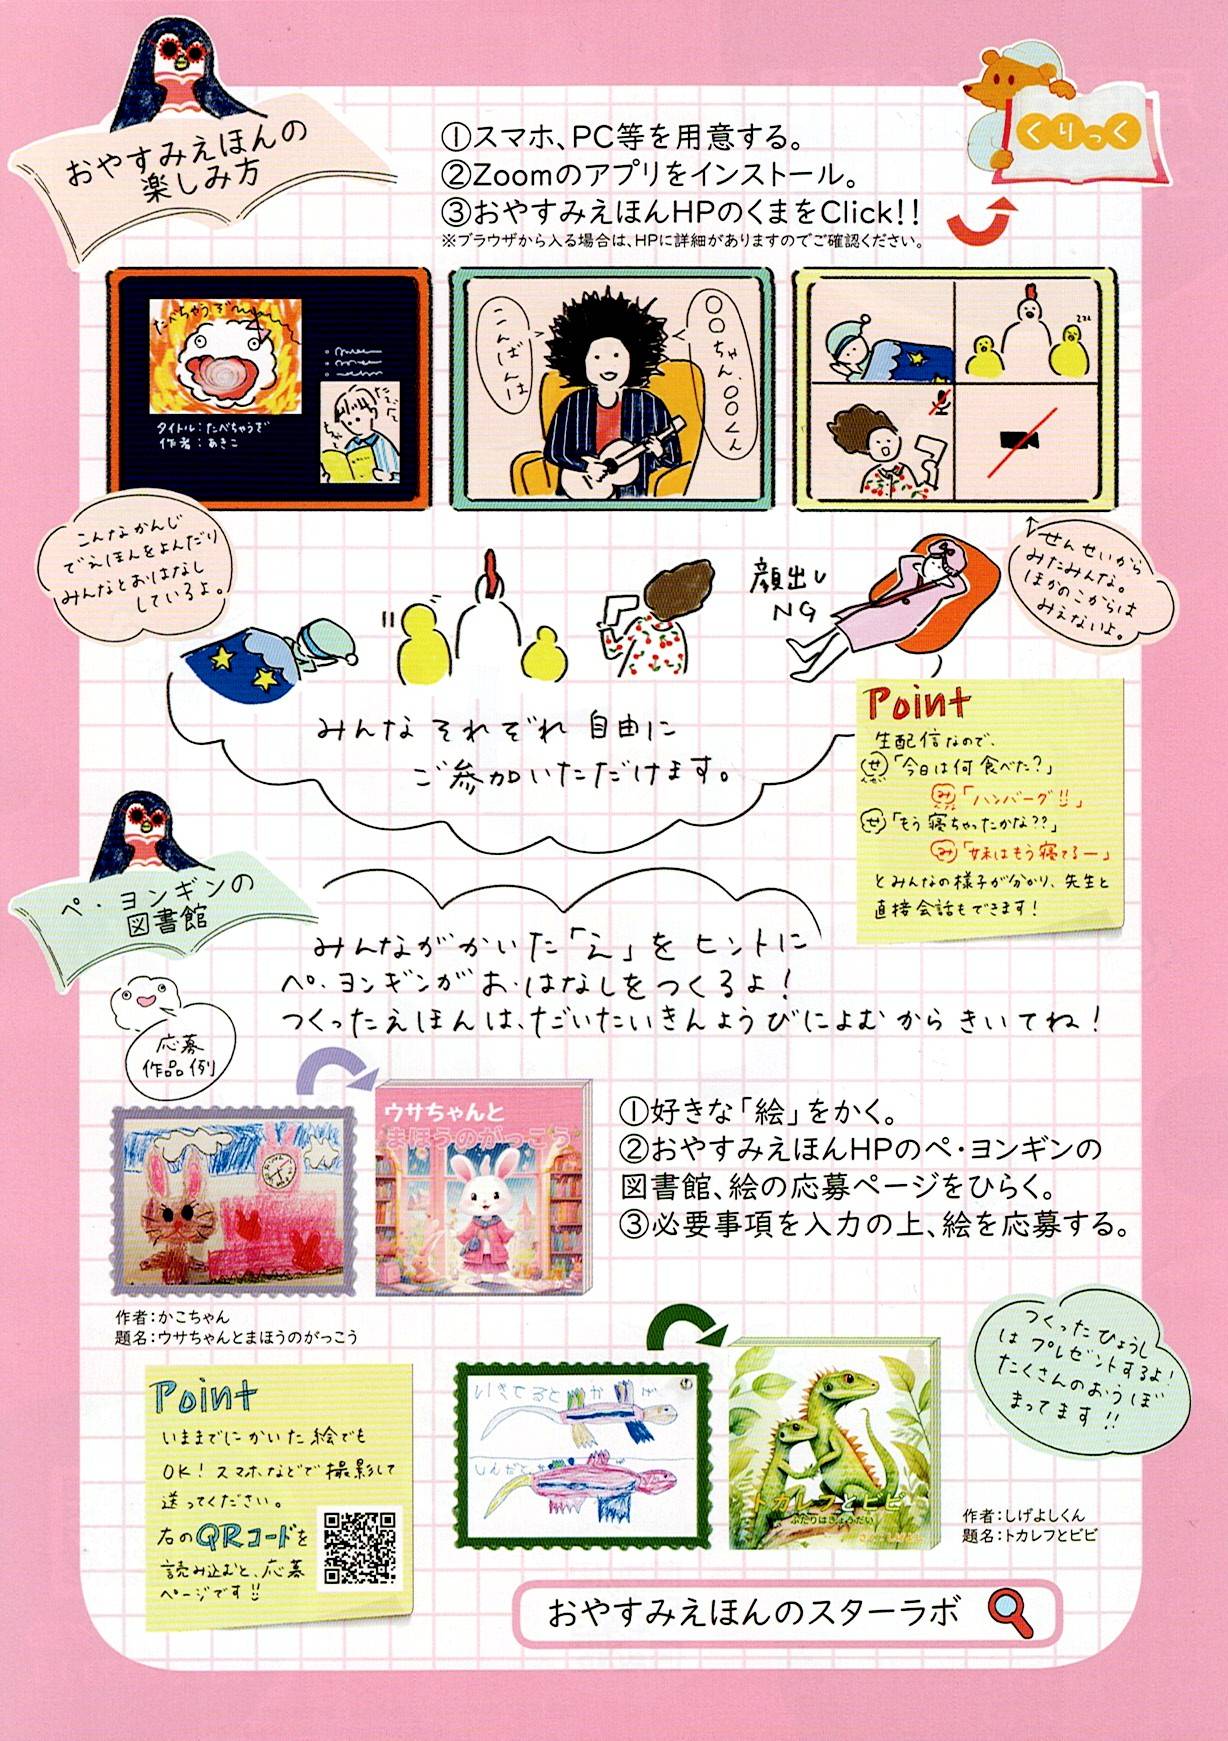 おやすみえほんの
楽しみ方
①スマホ、PC等を用意する。
②Zoomのアプリをインストール。
③おやすみえほんHPのくまをClick!!
※ブラウザから入る場合は、HPに詳細がありますのでご確認ください。
くりっく
たべちゃうぞ
タイトル：たべちゃうぞ
作者：あきこ
こんばんは
〇〇ちゃん、〇〇くん
zzz
こんなかんじ
でえほんをよんだり
みんなとおはなし
しているよ。
せんせいから
みたみんな。
ほかのこからは
みえないよ。
顔出し
NG
みんなそれぞれ自由に
ご参加いただけます。
Point
生配信なので、
せ「今日は何食べた?」
み「ハンバーグ!!」
せ「もう寝ちゃったかな??」
み「妹はもう寝てるー」
とみんなの様子が分かり、先生と
直接会話もできます!
ペ・ヨンギンの
図書館
みんながかいた「え」をヒントに
ペ・ヨンギンがおはなしをつくるよ!
つくったえほんは、だいたいきんようびによむからきいてね!
応募
作品例
ウサちゃんと
まほうのがっこう
①好きな「絵」をかく。
②おやすみえほんHPのペ・ヨンギンの
図書館、絵の応募ページをひらく。
③必要事項を入力の上、絵を応募する。
作者：かこちゃん
題名：ウサちゃんとまほうのがっこう
つくったひょうし
はプレゼントするよ!
たくさんのおうぼ
まってます!!
Point
いままでにかいた絵でも
OK! スマホなどで撮影して
送ってください。
右のQRコードを
読み込むと、応募
ページです!!
いきてるとか
トカレフとビビ
ふたりはきょうだい
作者：しげよしくん
題名：トカレフとビビ
おやすみえほんのスターラボ